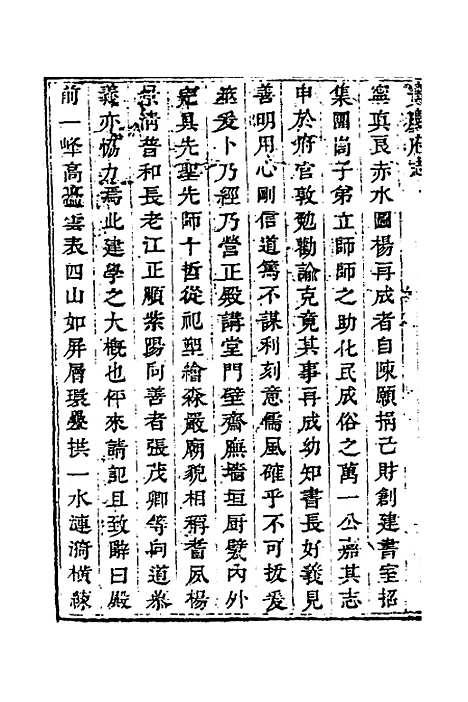 寶慶府志
寧真良赤水團楊再成者自陳願捐己財創建書室招
集團峝子弟立師師之助化民成俗之萬一公嘉其志
申於府官敦勉勸諭克竟其事再成幼知書長好義見
善明用心剛信道篤不謀利刻意儒風確乎不可拔爰
茲爰卜乃經乃營正殿講堂門壁齋廡墻垣厨㽃內外
完具先聖先師十哲從祀塑繪森嚴廟貌相稱耆夙楊
景清普和長老江正順紫陽向善者張茂卿等向道慕
義亦恊力焉此建學之大槪也伻來請記且致辭曰殿
前一峰高矗雲表四山如屏層環疊拱一水漣漪橫練